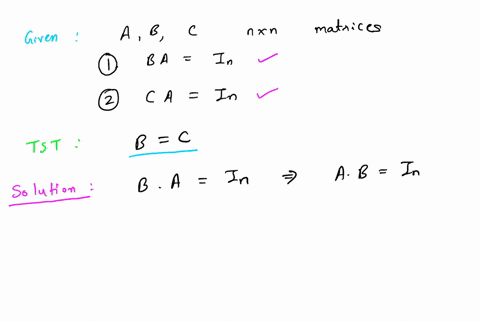 Given : A, B, C n×n matrices
① BA = In ✓
② CA = In ✓
TST : B = C
Solution : B . A = In ⇒ A.B = In